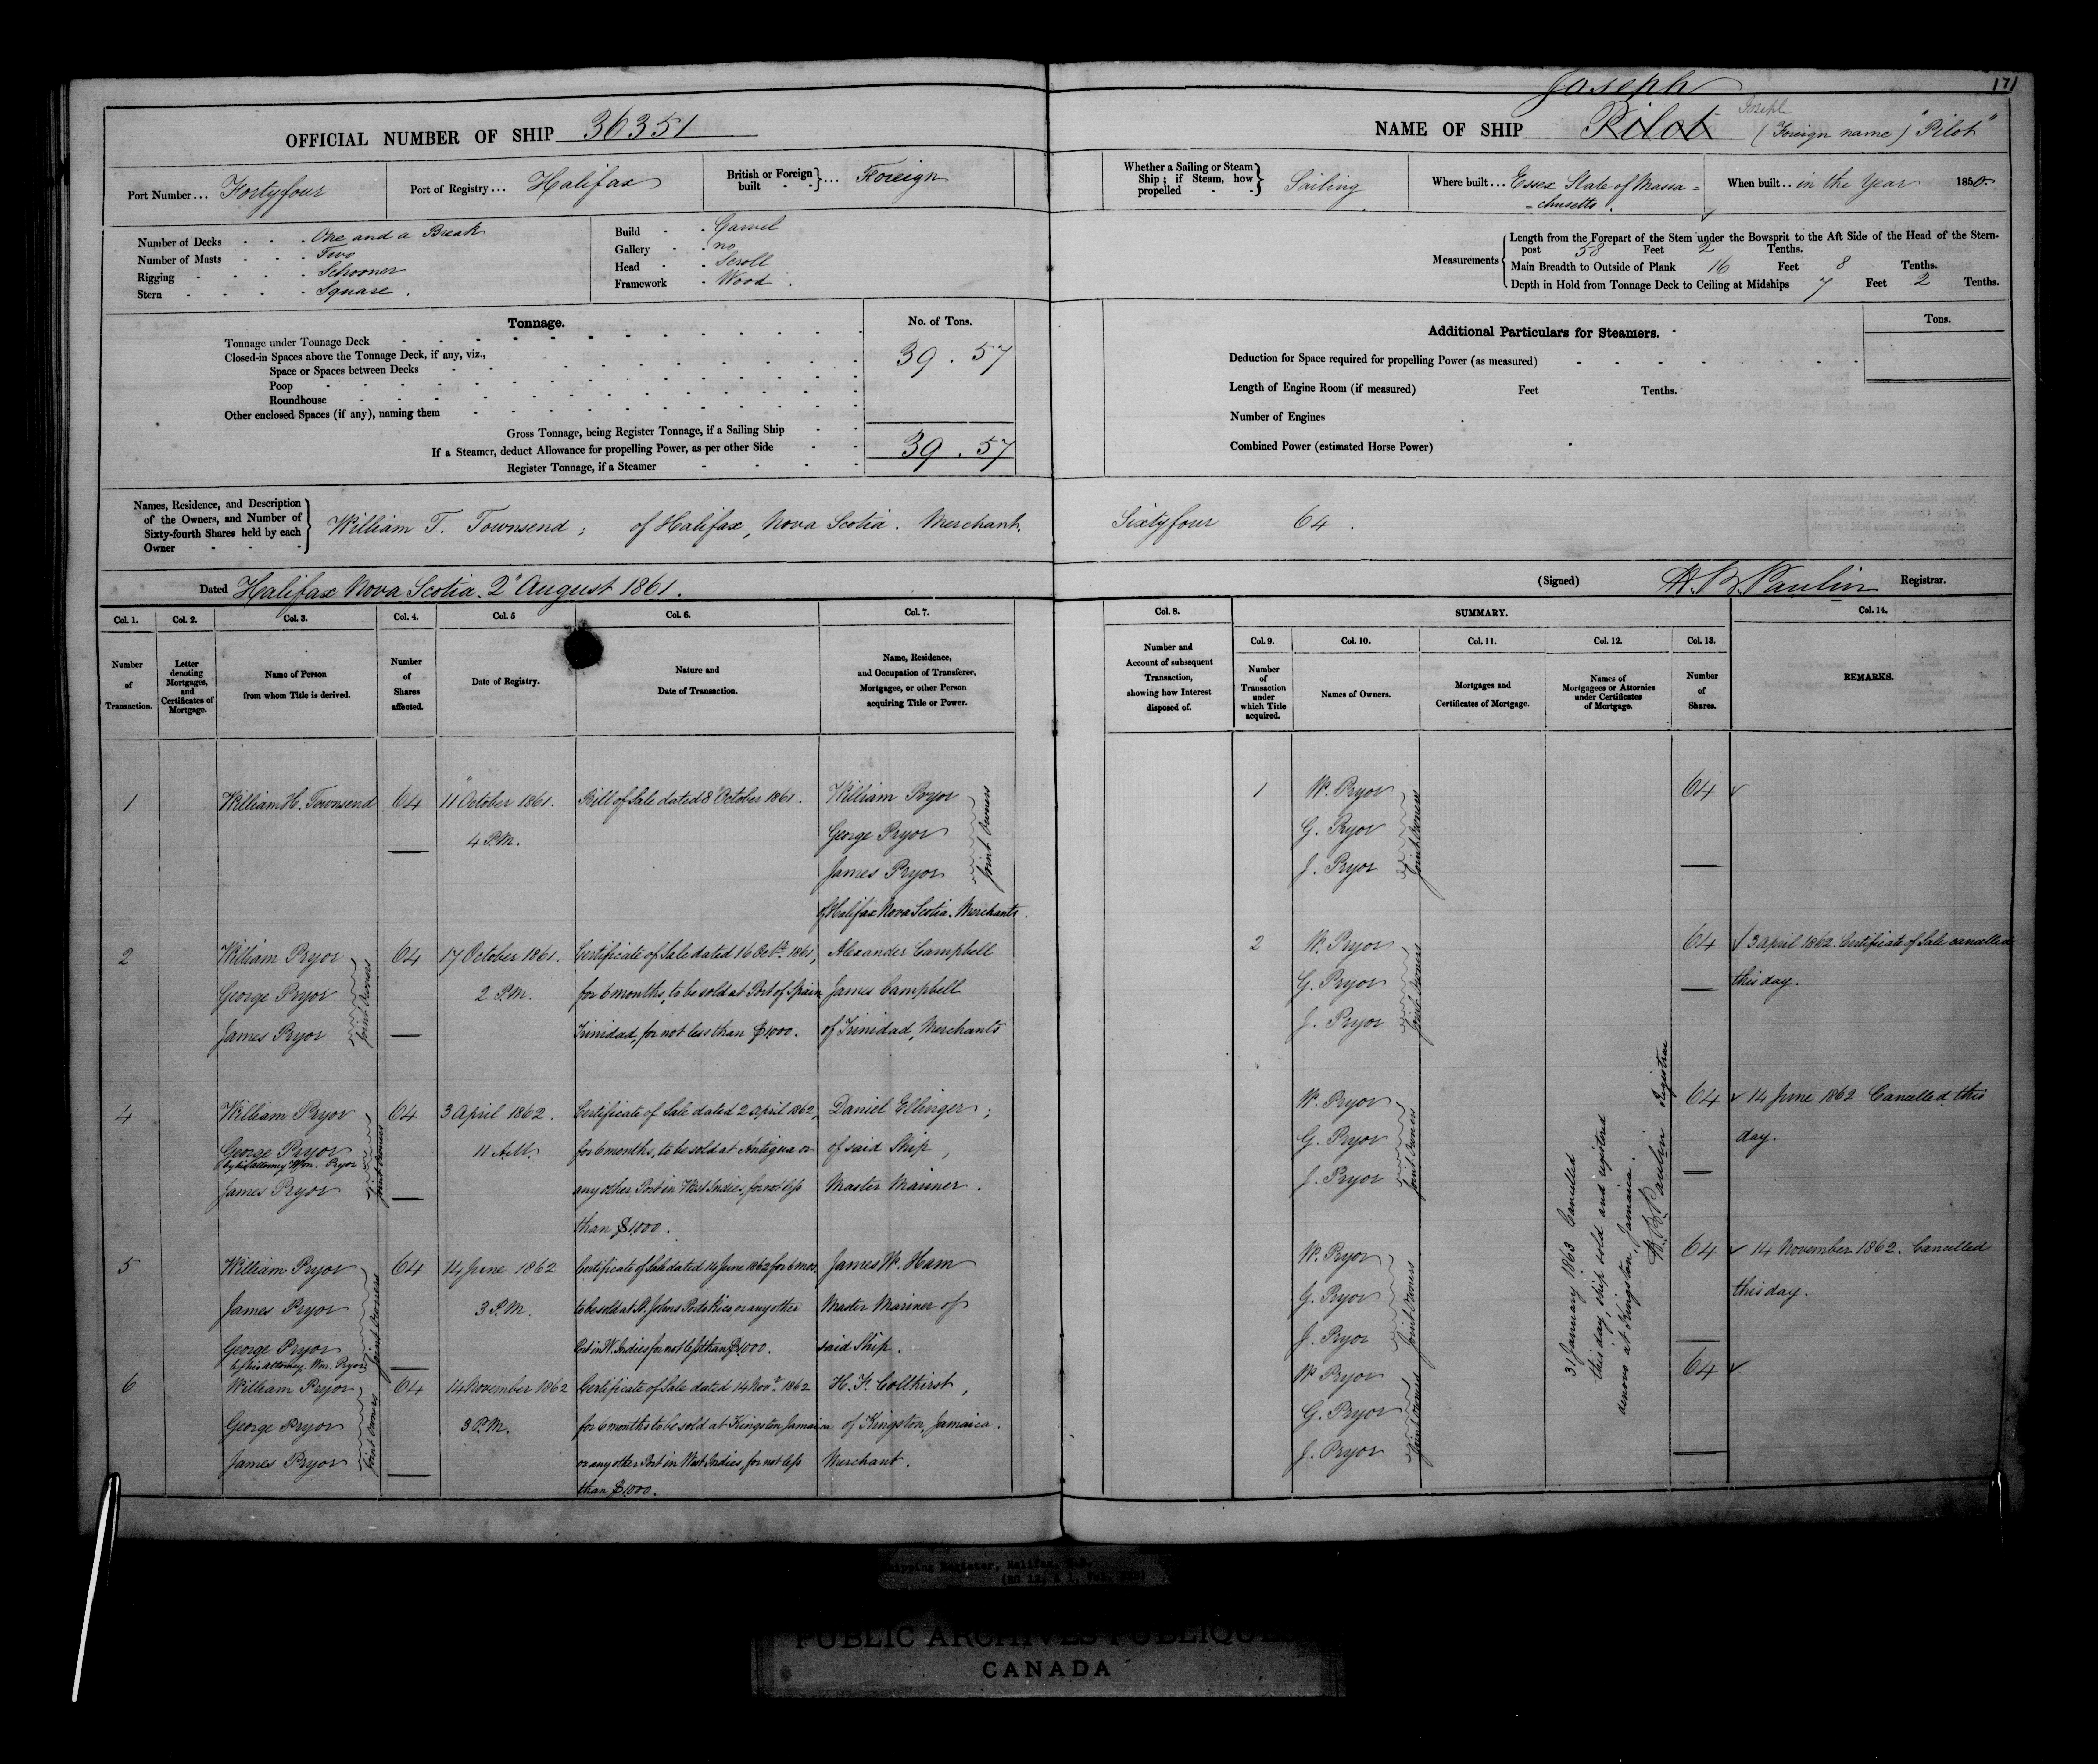 171
OFFICIAL NUMBER OF SHIP 36351
Joseph
NAME OF SHIP Pilot Joseph (Foreign name) "Pilot"
Port Number... Fortyfour
Port of Registry... Halifax
British or Foreign built - - }... Foreign
Whether a Sailing or Steam Ship; if Steam, how propelled - - } Sailing
Where built... Essex State of Massa=
=chusetts.
When built.. in the Year 1850.
Number of Decks - - - One and a Break
Number of Masts - - - Two
Rigging - - - - Schooner
Stern - - - - Square.
Build - - Carvel
Gallery - - no
Head - - Scroll
Framework - Wood.
Measurements
Length from the Forepart of the Stem under the Bowsprit to the Aft Side of the Head of the Stern-
post 58 Feet 2 Tenths.
Main Breadth to Outside of Plank 16 Feet 8 Tenths.
Depth in Hold from Tonnage Deck to Ceiling at Midships 7 Feet 2 Tenths.
Tonnage.
No. of Tons.
Tonnage under Tonnage Deck
Closed-in Spaces above the Tonnage Deck, if any, viz.,
39.57
Space or Spaces between Decks
Poop
Roundhouse
Other enclosed Spaces (if any), naming them
Gross Tonnage, being Register Tonnage, if a Sailing Ship
If a Steamer, deduct Allowance for propelling Power, as per other Side
39.57
Register Tonnage, if a Steamer
Additional Particulars for Steamers.
Tons.
Deduction for Space required for propelling Power (as measured)
Length of Engine Room (if measured) Feet Tenths.
Number of Engines
Combined Power (estimated Horse Power)
Names, Residence, and Description
of the Owners, and Number of
Sixty-fourth Shares held by each
Owner - - -
William T. Townsend; of Halifax, Nova Scotia. Merchant. Sixtyfour 64.
Dated Halifax Nova Scotia. 2" August 1861.
(Signed) H. B. Paulin Registrar.
Col. 1.
Number
of
Transaction.
Col. 2.
Letter
denoting
Mortgages,
and
Certificates of
Mortgage.
Col. 3.
Name of Person
from whom Title is derived.
Col. 4.
Number
of
Shares
affected.
Col. 5
Date of Registry.
Col. 6.
Nature and
Date of Transaction.
Col. 7.
Name, Residence,
and Occupation of Transferee,
Mortgagee, or other Person
acquiring Title or Power.
Col. 8.
Number and
Account of subsequent
Transaction,
showing how Interest
disposed of.
SUMMARY.
Col. 9.
Number
of
Transaction
under
which Title
acquired.
Col. 10.
Names of Owners.
Col. 11.
Mortgages and
Certificates of Mortgage.
Col. 12.
Names of
Mortgagees or Attornies
under Certificates
of Mortgage.
Col. 13.
Number
of
Shares.
Col. 14.
REMARKS.
1
William H. Townsend
64
11" October 1861.
4 P.M.
Bill of Sale dated 8" October 1861.
William Pryor
George Pryor
James Pryor
Joint Owners
of Halifax Nova Scotia. Merchants.
1
W. Pryor
G. Pryor
J. Pryor
Joint Owners
64
2
William Pryor
George Pryor
James Pryor
Joint Owners
64
17 October 1861.
2 P.M.
Certificate of Sale dated 16 Oct. 1861,
for 6 months, to be sold at Port of Spain
Trinidad, for not less than $1000.
Alexander Campbell
James Campbell
of Trinidad, Merchants
2
W. Pryor
G. Pryor
J. Pryor
Joint Owners
64
3 April 1862. Certificate of Sale cancelled
this day.
4
William Pryor
George Pryor
by his attorney Wm. Pryor
James Pryor
Joint Owners
64
3 April 1862.
11 A.M.
Certificate of Sale dated 2 April 1862,
for 6 months, to be sold at Antigua or
any other Port in West Indies, for not less
than $1000.
Daniel Ellinger;
of said Ship,
Master Mariner.
W. Pryor
G. Pryor
J. Pryor
Joint Owners
64
14 June 1862 Cancelled this
day.
5
William Pryor
James Pryor
George Pryor
by his attorney Wm. Pryor
Joint Owners
64
14 June 1862
3 P.M.
Certificate of Sale dated 14 June 1862 for 6 mos.
to be sold at St. Johns Porto Rico or any other
Port in W. Indies for not less than $1000.
James W. Ham
Master Mariner of
said Ship.
W. Pryor
G. Pryor
J. Pryor
Joint Owners
64
14 November 1862. Cancelled
this day.
6
William Pryor
George Pryor
James Pryor
Joint Owners
64
14 November 1862
3 P.M.
Certificate of Sale dated 14 Nov. 1862
for 6 months to be sold at Kingston, Jamaica
or any other Port in West Indies, for not less
than $1000.
of Kingston, Jamaica.
Merchant.
W. Pryor
G. Pryor
J. Pryor
Joint Owners
64
31 January 1863 Cancelled
this day, ship sold and registered
at Kingston, Jamaica.
H. B. Paulin Registrar
Shipping Register, Halifax, N.S.
(RG 12, A 1, Vol.
PUBLIC ARCHIVES PUBLIQUES
CANADA